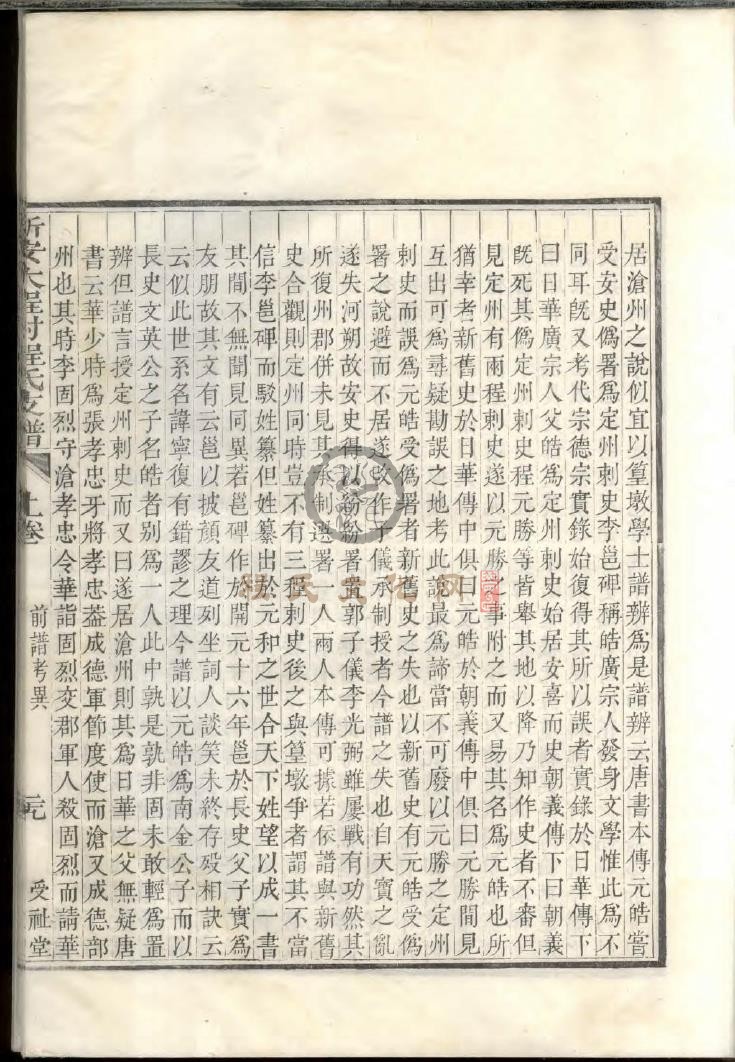 居滄州之說似宜以篁墩學士譜辨爲是譜辨云唐書本傳元皓嘗
受安史僞署爲定州刺史李邕碑稱皓廣宗人發身文學惟此爲不
同耳旣又考代宗德宗實錄始復得其所以誤者實錄於日華傳下
曰日華廣宗人父皓爲定州刺史始居安喜而史朝義傳下曰朝義
旣死其僞定州刺史程元勝等皆舉其地以降乃知作史者不審但
見定州有兩程刺史遂以元勝之事附之而又易其名爲元皓也所
猶幸考新舊史於日華傳中俱曰元皓於朝義傳中俱曰元勝間見
互出可爲尋疑勘誤之地考此說最爲諦當不可廢以元勝之定州
刺史而誤爲元皓受僞署者新舊史之失也以新舊史有元皓受僞
署之說避而不居遂改作子儀承制授者今譜之失也自天寶之亂
遂失河朔故安史得以紛紛署置郭子儀李光弼雖屢戰有功然其
所復州郡併未見其承制選署一人兩人本傳可據若依譜與新舊
史合觀則定州同時豈不有三程刺史後之與篁墩爭者謂其不當
信李邕碑而駁姓纂但姓纂出於元和之世合天下姓望以成一書
其間不無聞見同異若邕碑作於開元十六年邕於長史父子實爲
友朋故其文有云邕以披顏友道列坐詞人談笑未終存歿相訣云
云似此世系名諱寧復有錯謬之理今譜以元皓爲南金公子而以
長史文英公之子名皓者别爲一人此中孰是孰非固未敢輕爲置
辨但譜言授定州刺史而又曰遂居滄州則其爲日華之父無疑唐
書云華少時爲張孝忠牙將孝忠葢成德軍節度使而滄又成德部
州也其時李固烈守滄孝忠令華詣固烈交郡軍人殺固烈而請華
新安大程村程氏支譜 上卷 前譜考異 受祉堂
程氏文化网